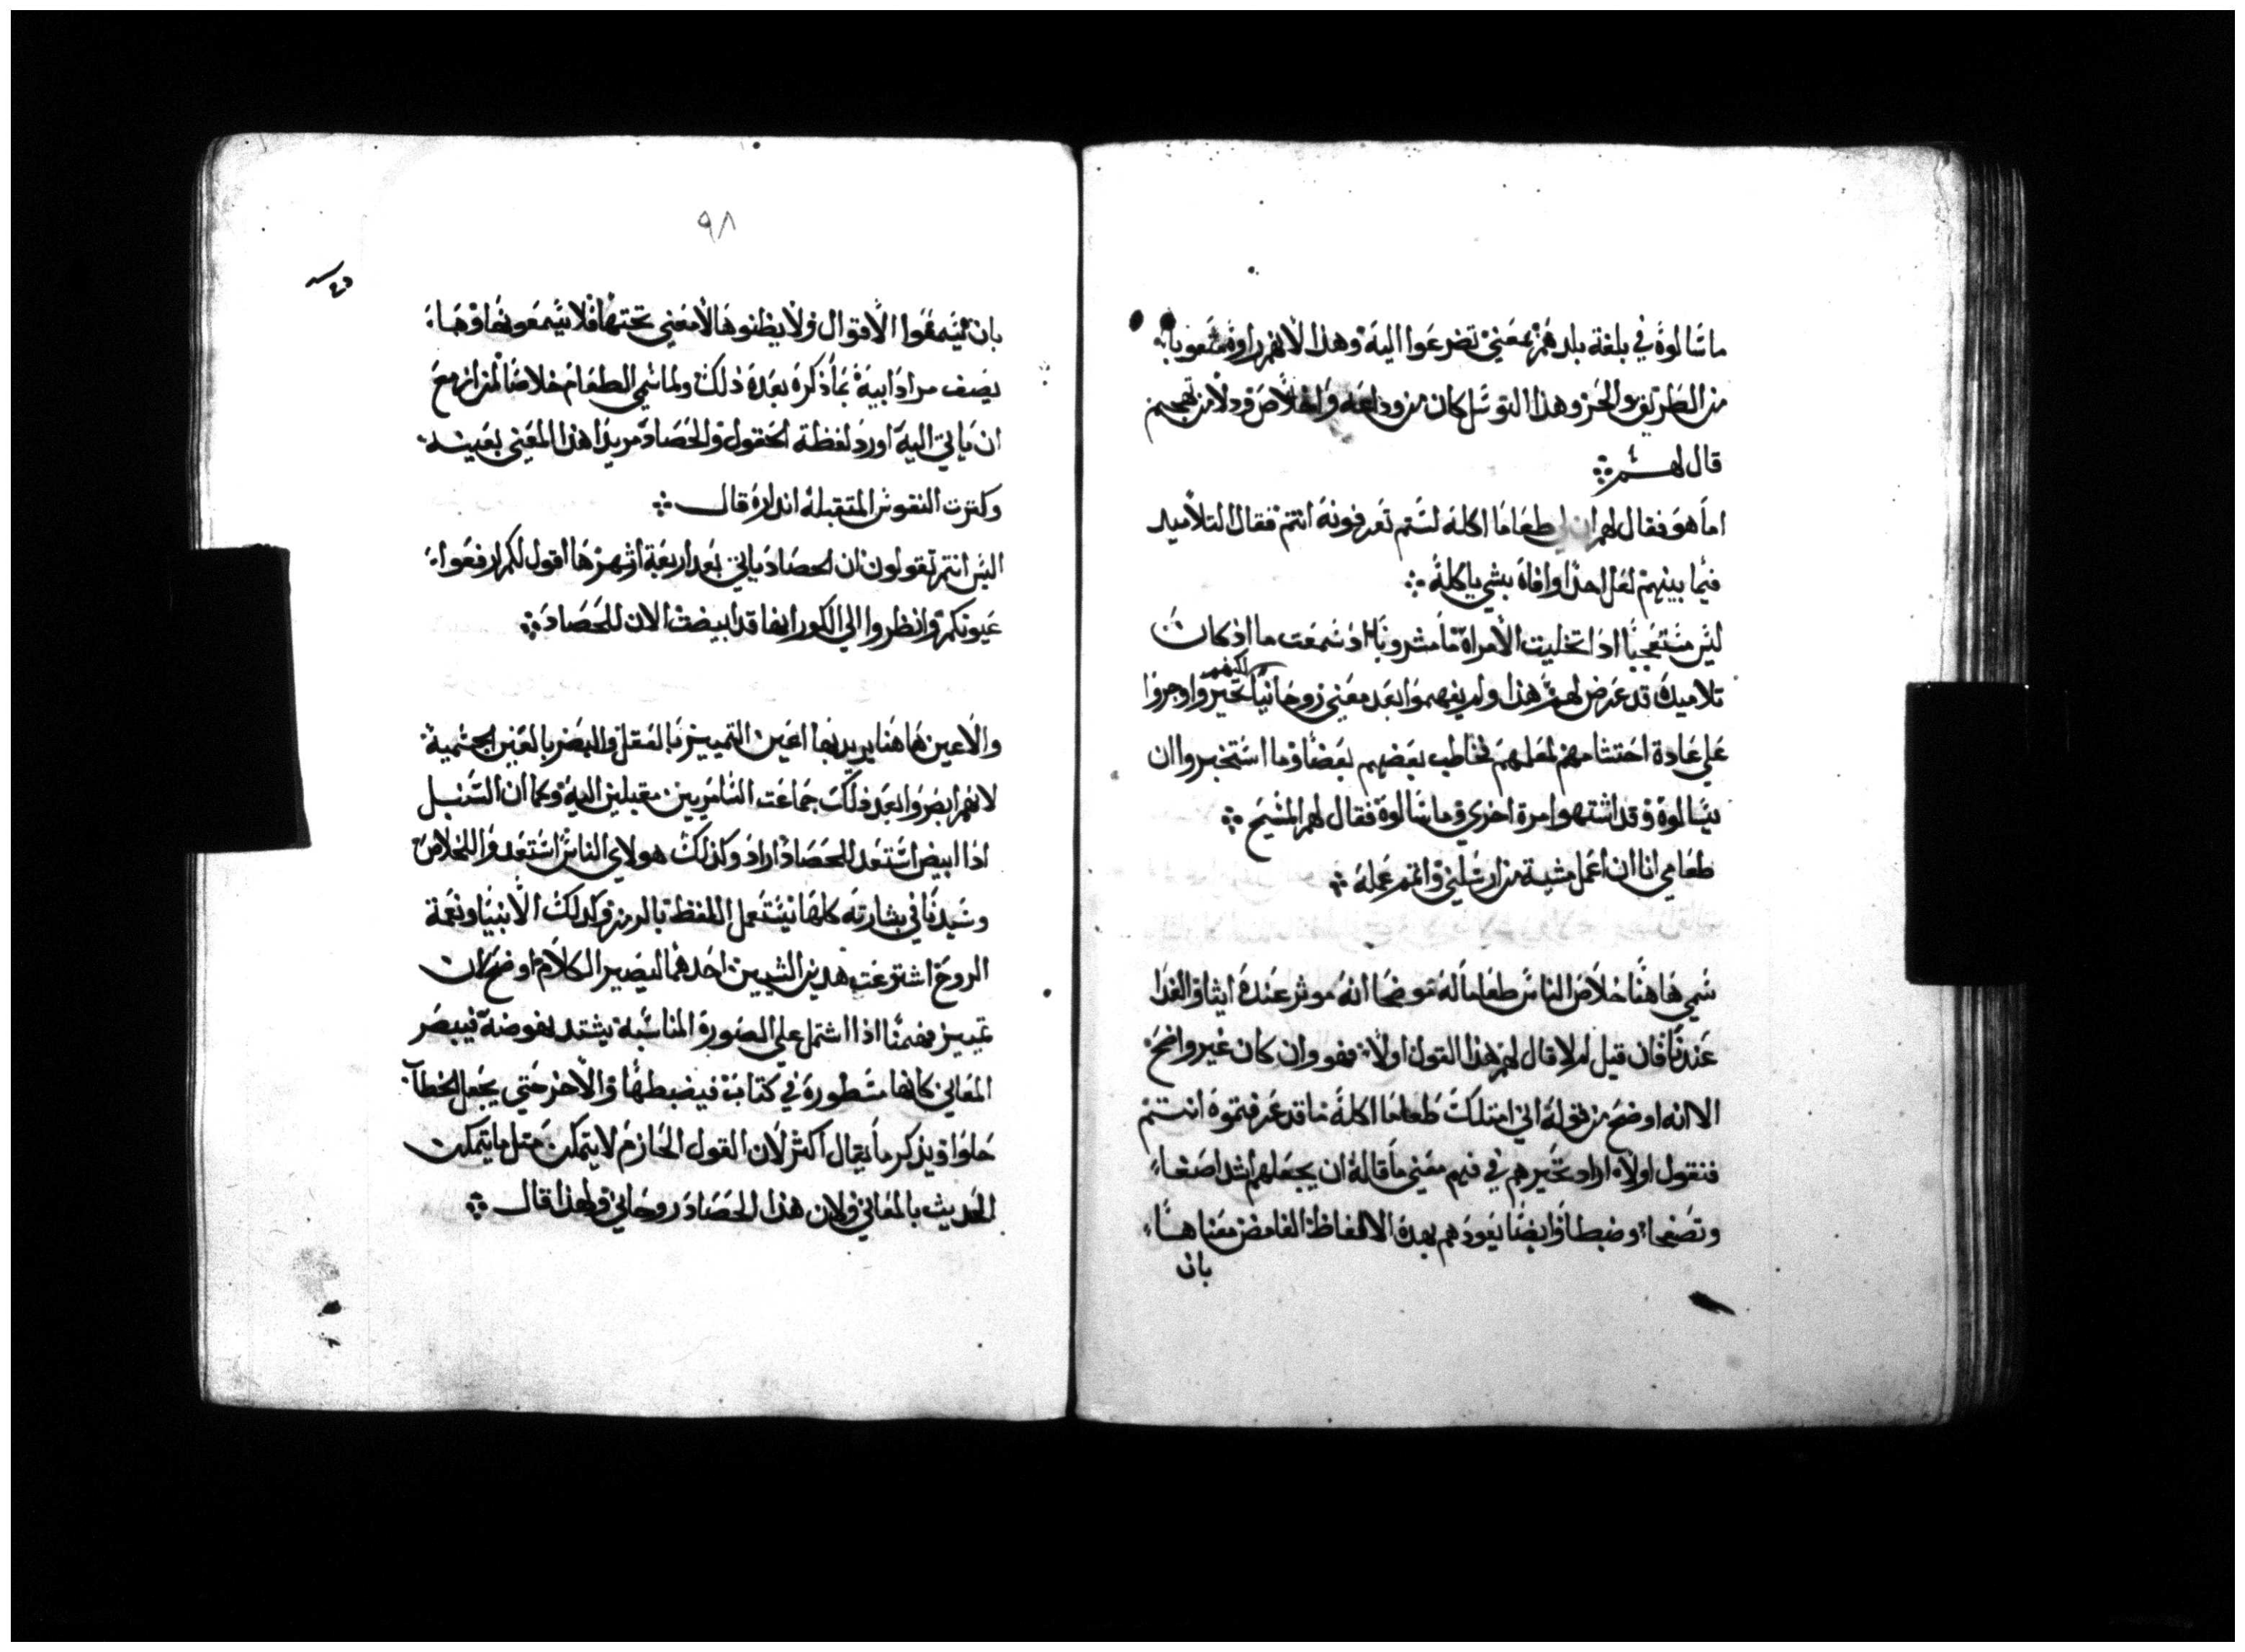 ما سَالوهُ في بلغة بلدهم بمعَني تضرعَوا اليهَ وَهذا لانهم راوهُ متعوباً
من الطريق والحر وهذا التوسل كان من وداعه واخلاص ودلا من تهجم
قال لهم
اما هوَ فقال لهم ان لي طعَاما اكلهَ لستم تعرفونهَ انتم فقال التلاميد
فيما بينهم لعَل احدا وافاهَ بشي ياكلهُ
ليس مستعَجبا اد اتخليت الامراة مَا مشروبا اد سمعَت ما اد كان
تلاميدهَ قد عَرض لهم هذا ولم يفهموا بعَد معَني روحانيا لكنهم تحير واوجروا
عَلي عَادة احتشامهم لمعلمهم فخاطب بعَضهم بعَضا وَما استخبروا ان
يسالوهُ وَقد اشتهوا مرة اخري وَما سَالوهَ فقال لهم المسيح
طعَامي انا ان اعَمل مشية من ارسَلني وَاتمم عَملهُ
سَمي هَاهنا خلاصَ الناسَ طعَاما لهَ موضحا انهُ موثر عَندهَ ايثاوَ الغدا
عَندنا فان قيل لم لا قال لهم هذا القول اولا فهو وان كان غير واضح
الا انه اوضح من قولهَ اني امتلكت طعاما اكلهُ ما قد عَرفتموهَ انتم
فنقول اولاً اراد تحيرهم في فهم معَني ما قالهُ ان يجعَلهم اشد اصَغاءً
وتصَفحاً وضبطا وَايضا يعَودَهم بهدهُ الالفاظ الغامض معَناها
بان
٩٨
بان يسَمعَوا الاقوال وَلا يظنوهَا لا معَني تحتها فلا يسَمعَونها وَها
يصَف مراد ابيهَ بما ذكرهَ بعَدهَ ذلك ولما سَمي الطعَام خلاصَا لمن ازمعَ
ان ياتي اليهَ اورد لفظة الحَقول وَالحصَاد مريدا هذا المعَني بعَينه
وكترت النفوس المتقبلهُ اندارهُ قال
اليسَ انتم تقولون ان الحصَادَ ياتي بعَد اربعَة اشهرَ هَا اقول لكم ارفعَوا
عَيونكم وَانظروا الي الكور انها قد ابيضت الان للحصَادَ
والاعين هَاهنا يريد بها اعَين التمييز بالعَقل وَالبصَر بالعَين الجسَمية
لانهم ابصَروَا بعَد ذلك جماعَت السَامريين مقبلين اليهَ وَكما ان السَنبل
ادا ابيض استعَد للحصَاد اراد وكذلك هولاي الناسَ استعَدوَا للخلاصَ
وسَيدنا في بشارته كلها يسَتعَمل اللفظ بالرمز وَكدلك الانبيا ونعَمة
الروح اشترعَت هدين الشيين احَدهما ليصَير الكلام اوضح لان
تمييز فهمنا اذا اشتمل علي الصَورة المناسَبة يشتد نهوضهَ فيبصَر
المعَاني كانها مسَطورة في كتاب فيضبطها وَالاخر حَتي يجعَل الخطاب
حَلوَا وَيذكر ما يقال اكثر لان القول الحَازم لا يتمكن متل ما يتمكن
الحَديث بالمعَاني وَلان هذا الحصَاد روحَاني وَلهذا قال